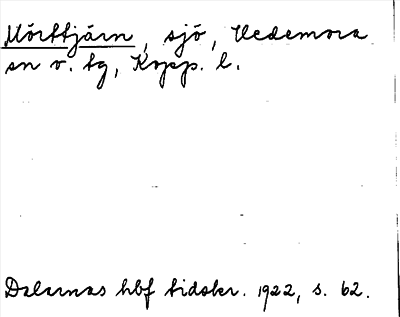 Mörttjärn, sjö, Hedemora
sn o. tg, Kopp. l.
Dalarnas hbf tidskr. 1922, s. 62.